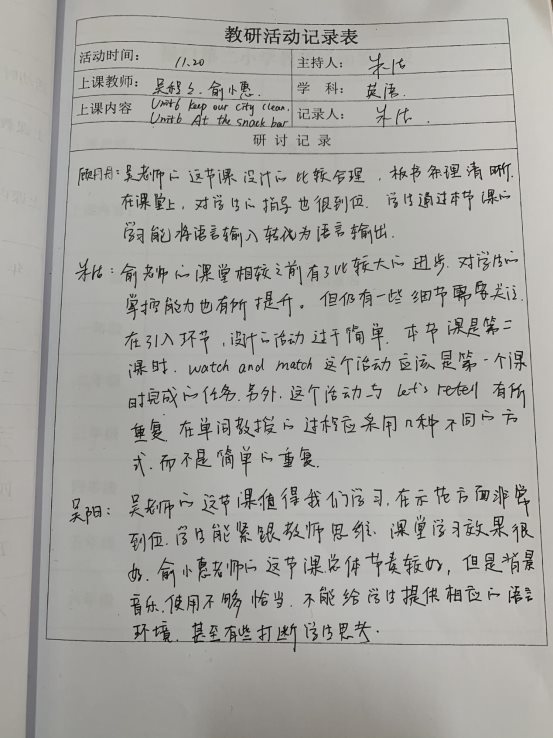 教研活动记录表
活动时间： 11.20 主持人： 朱洁
上课教师： 吴 俞小惠. 学 科： 英语.
上课内容 Unit6 keep our city clean. Unit6 At the snack bar 记录人： 朱洁.
研 讨 记 录
顾丹丹：吴老师的这节课设计的比较合理，板书条理清晰.
在课堂上，对学生的指导也很到位. 学生通过本节课的
学习能将语言输入转化为语言输出.
朱洁：俞老师的课堂相较之前有了比较大的进步. 对学生的
掌控能力也有所提升。但仍有一些细节需要关注.
在引入环节，设计的活动过于简单. 本节课是第二
课时. watch and match 这个活动应该是第一个课
时完成的任务. 另外. 这个活动与 let's retell 有所
重复. 在单词教授的过程应采用几种不同的方
式. 而不是简单的重复.
吴阳：吴老师的这节课值得我们学习. 在示范方面非常
到位. 学生能紧跟教师思维. 课堂学习效果很
好. 俞小惠老师的这节课总体节奏较好，但是背景
音乐使用不够恰当. 不能给学生提供相应的语言
环境. 甚至有些打断学生思考.